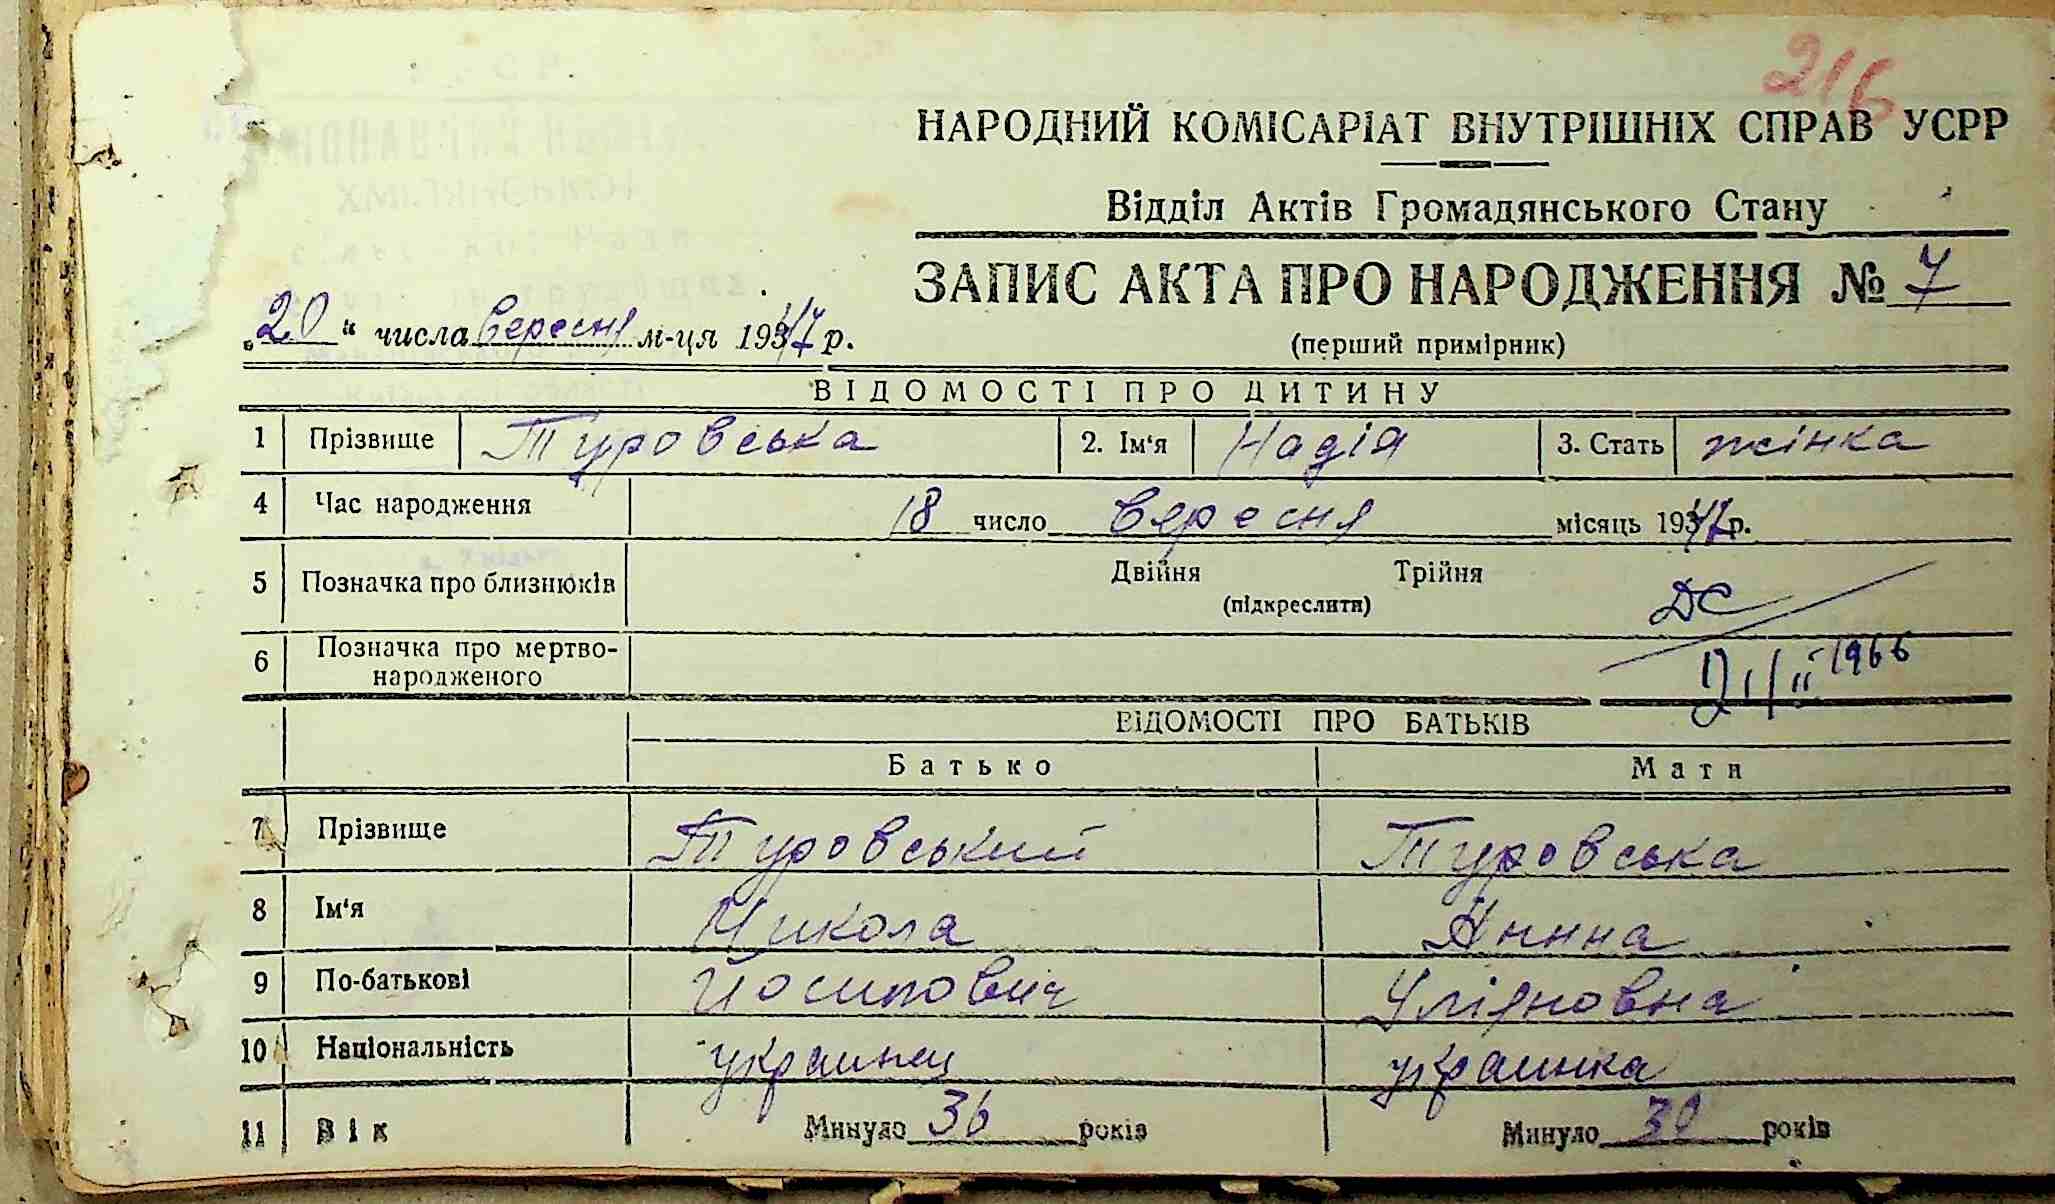 216
НАРОДНИЙ КОМІСАРІАТ ВНУТРІШНІХ СПРАВ УСРР
Відділ Актів Громадянського Стану
ЗАПИС АКТА ПРО НАРОДЖЕННЯ № 7
„20“ числа вересня м-ця 1947 р.
(перший примірник)
ВІДОМОСТІ ПРО ДИТИНУ
1 Прізвище Туровська 2. Ім'я Надія 3. Стать жінка
4 Час народження 18 число вересня місяць 1947 р.
5 Позначка про близнюків Двійня Трійня
(підкреслити)
ДС
6 Позначка про мертво-
народженого
21/II 1966
ВІДОМОСТІ ПРО БАТЬКІВ
Батько Мати
7 Прізвище Туровський Туровська
8 Ім'я Микола Анна
9 По-батькові Йосипович
10 Національність украинец украинка
11 Вік Минуло 36 років Минуло 30 років